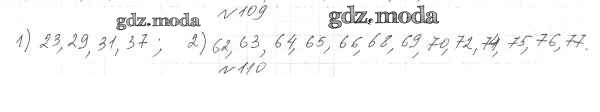 №109
gdz.moda gdz.moda
1) 23, 29, 31, 37; 2) 62, 63, 64, 65, 66, 68, 69, 70, 72, 74, 75, 76, 77.
№110